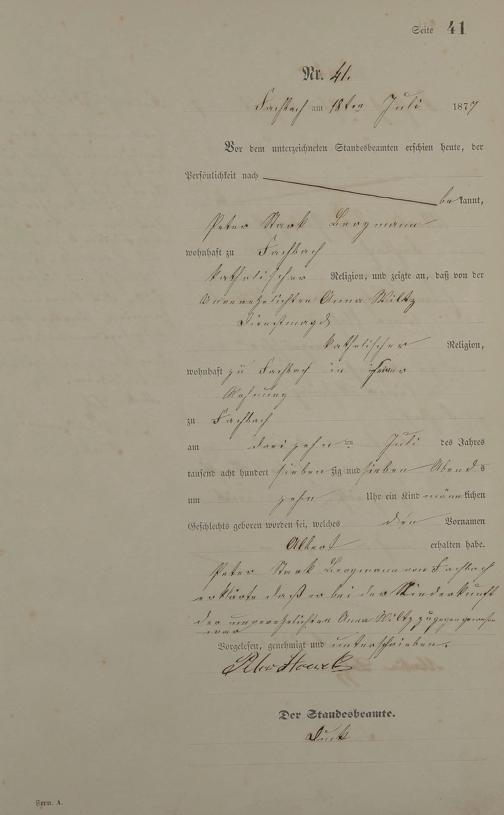 Seite 41
Nr. 41.
Fachbach am 18ten Juli 1877
Vor dem unterzeichneten Standesbeamten erschien heute, der
Persönlichkeit nach
bekannt,
Peter Stark Bergmann
wohnhaft zu Fachbach
katholischer Religion, und zeigte an, daß von der
Unverehelichten Anna Wiltz
Dienstmagd
katholischer Religion,
wohnhaft zu Fachbach in ihrer
Wohnung
zu Fachbach
am dreizehnten Juli des Jahres
tausend acht hundert siebenzig und sieben Abends
um zehn Uhr ein Kind männlichen
Geschlechts geboren worden sei, welches den Vornamen
Albert erhalten habe.
Peter Stark Bergmann von Fachbach
erklärte daß er bei der Niederkunft
der unverehelichten Anna Wiltz zugegen gewesen
war
Vorgelesen, genehmigt und unterschrieben.
Peter Starck
Der Standesbeamte.
Form. A.